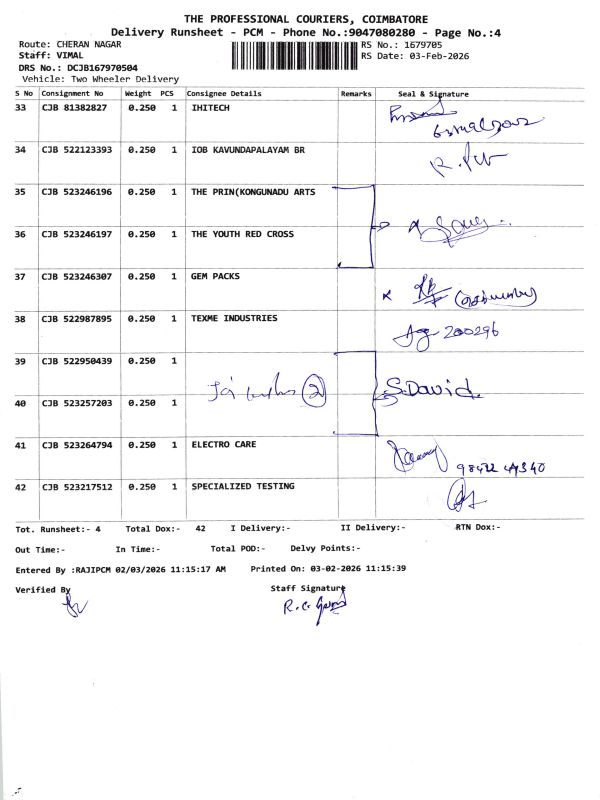 THE PROFESSIONAL COURIERS, COIMBATORE
Delivery Runsheet - PCM - Phone No.:9047080280 - Page No.:4
Route: CHERAN NAGAR RS No.: 1679705
Staff: VIMAL RS Date: 03-Feb-2026
DRS No.: DCJB167970504
Vehicle: Two Wheeler Delivery
S No Consignment No Weight PCS Consignee Details Remarks Seal & Signature
33 CJB 81382827 0.250 1 IHITECH
34 CJB 522123393 0.250 1 IOB KAVUNDAPALAYAM BR
35 CJB 523246196 0.250 1 THE PRIN(KONGUNADU ARTS
36 CJB 523246197 0.250 1 THE YOUTH RED CROSS
37 CJB 523246307 0.250 1 GEM PACKS
38 CJB 522987895 0.250 1 TEXME INDUSTRIES
39 CJB 522950439 0.250 1
2 S.David
40 CJB 523257203 0.250 1
41 CJB 523264794 0.250 1 ELECTRO CARE
42 CJB 523217512 0.250 1 SPECIALIZED TESTING
Tot. Runsheet:- 4 Total Dox:- 42 I Delivery:- II Delivery:- RTN Dox:-
Out Time:- In Time:- Total POD:- Delvy Points:-
Entered By :RAJIPCM 02/03/2026 11:15:17 AM Printed On: 03-02-2026 11:15:39
Verified By Staff Signature